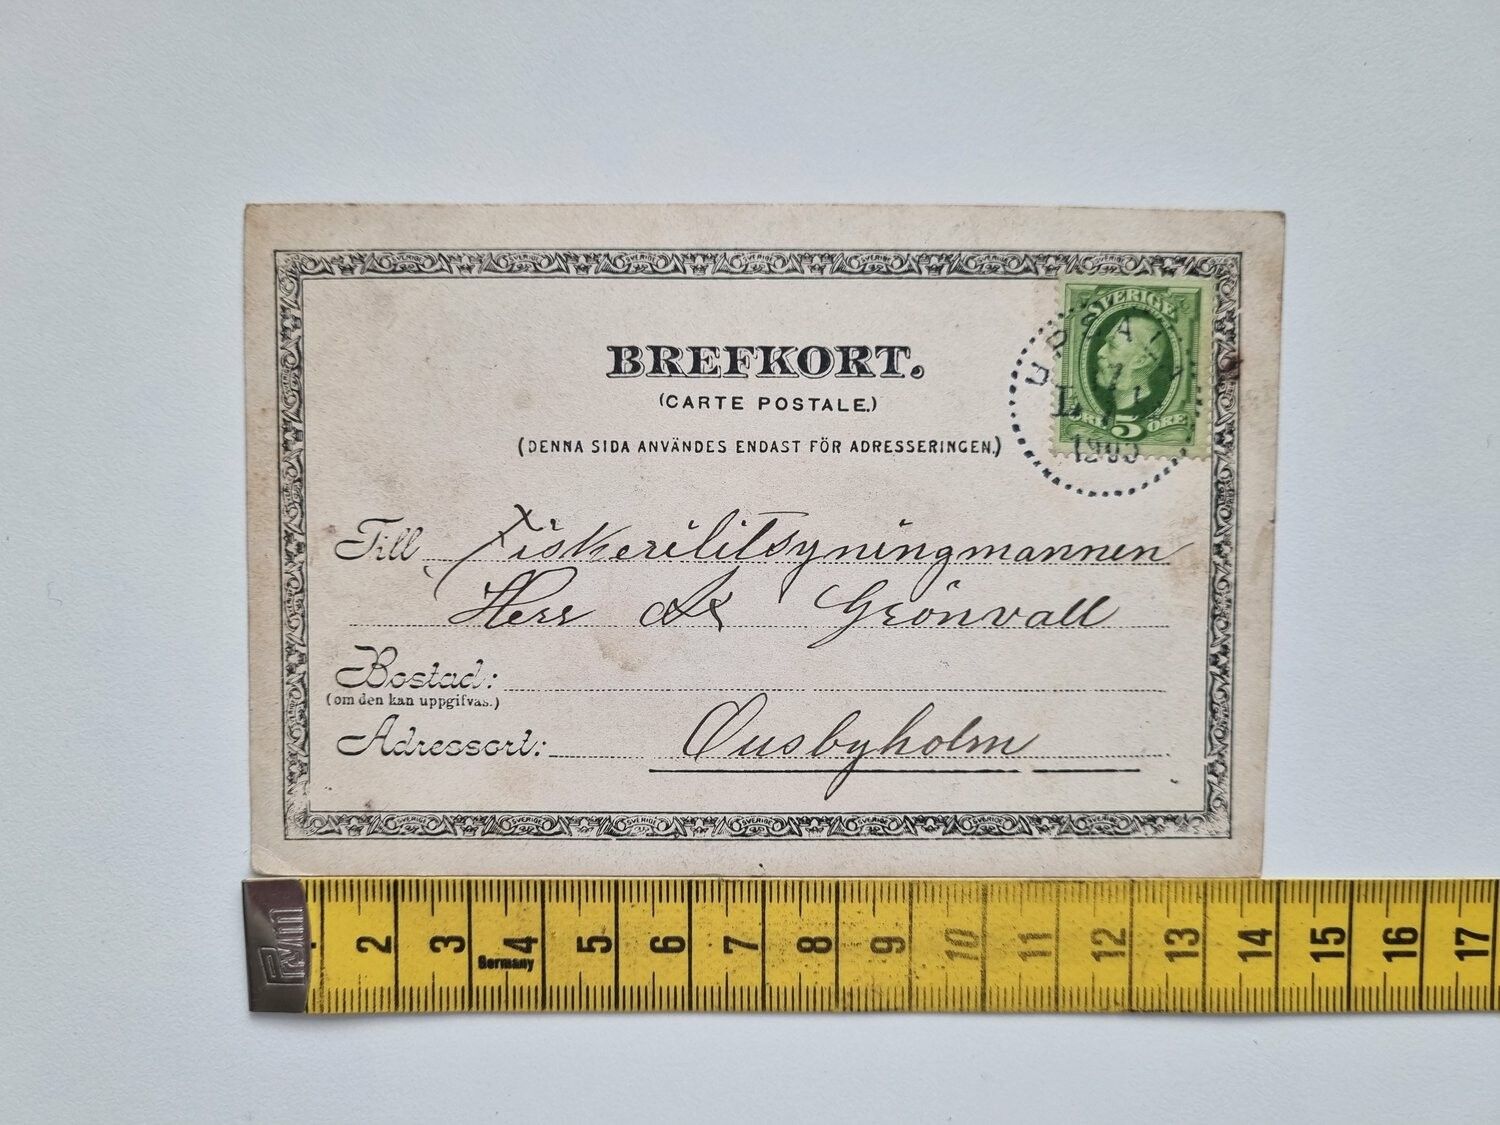 BREFKORT.
(CARTE POSTALE.)
(DENNA SIDA ANVÄNDES ENDAST FÖR ADRESSERINGEN.)
SVERIGE
5 ÖRE
UPSALA
1903
Till Fiskeritillsyningmannen
Herr Grönvall
Bostad:
(om den kan uppgifvas.)
Adressort: Qusbyholm
PRYM
2 3 4 5 6 7 8 9 10 11 12 13 14 15 16 17
Germany